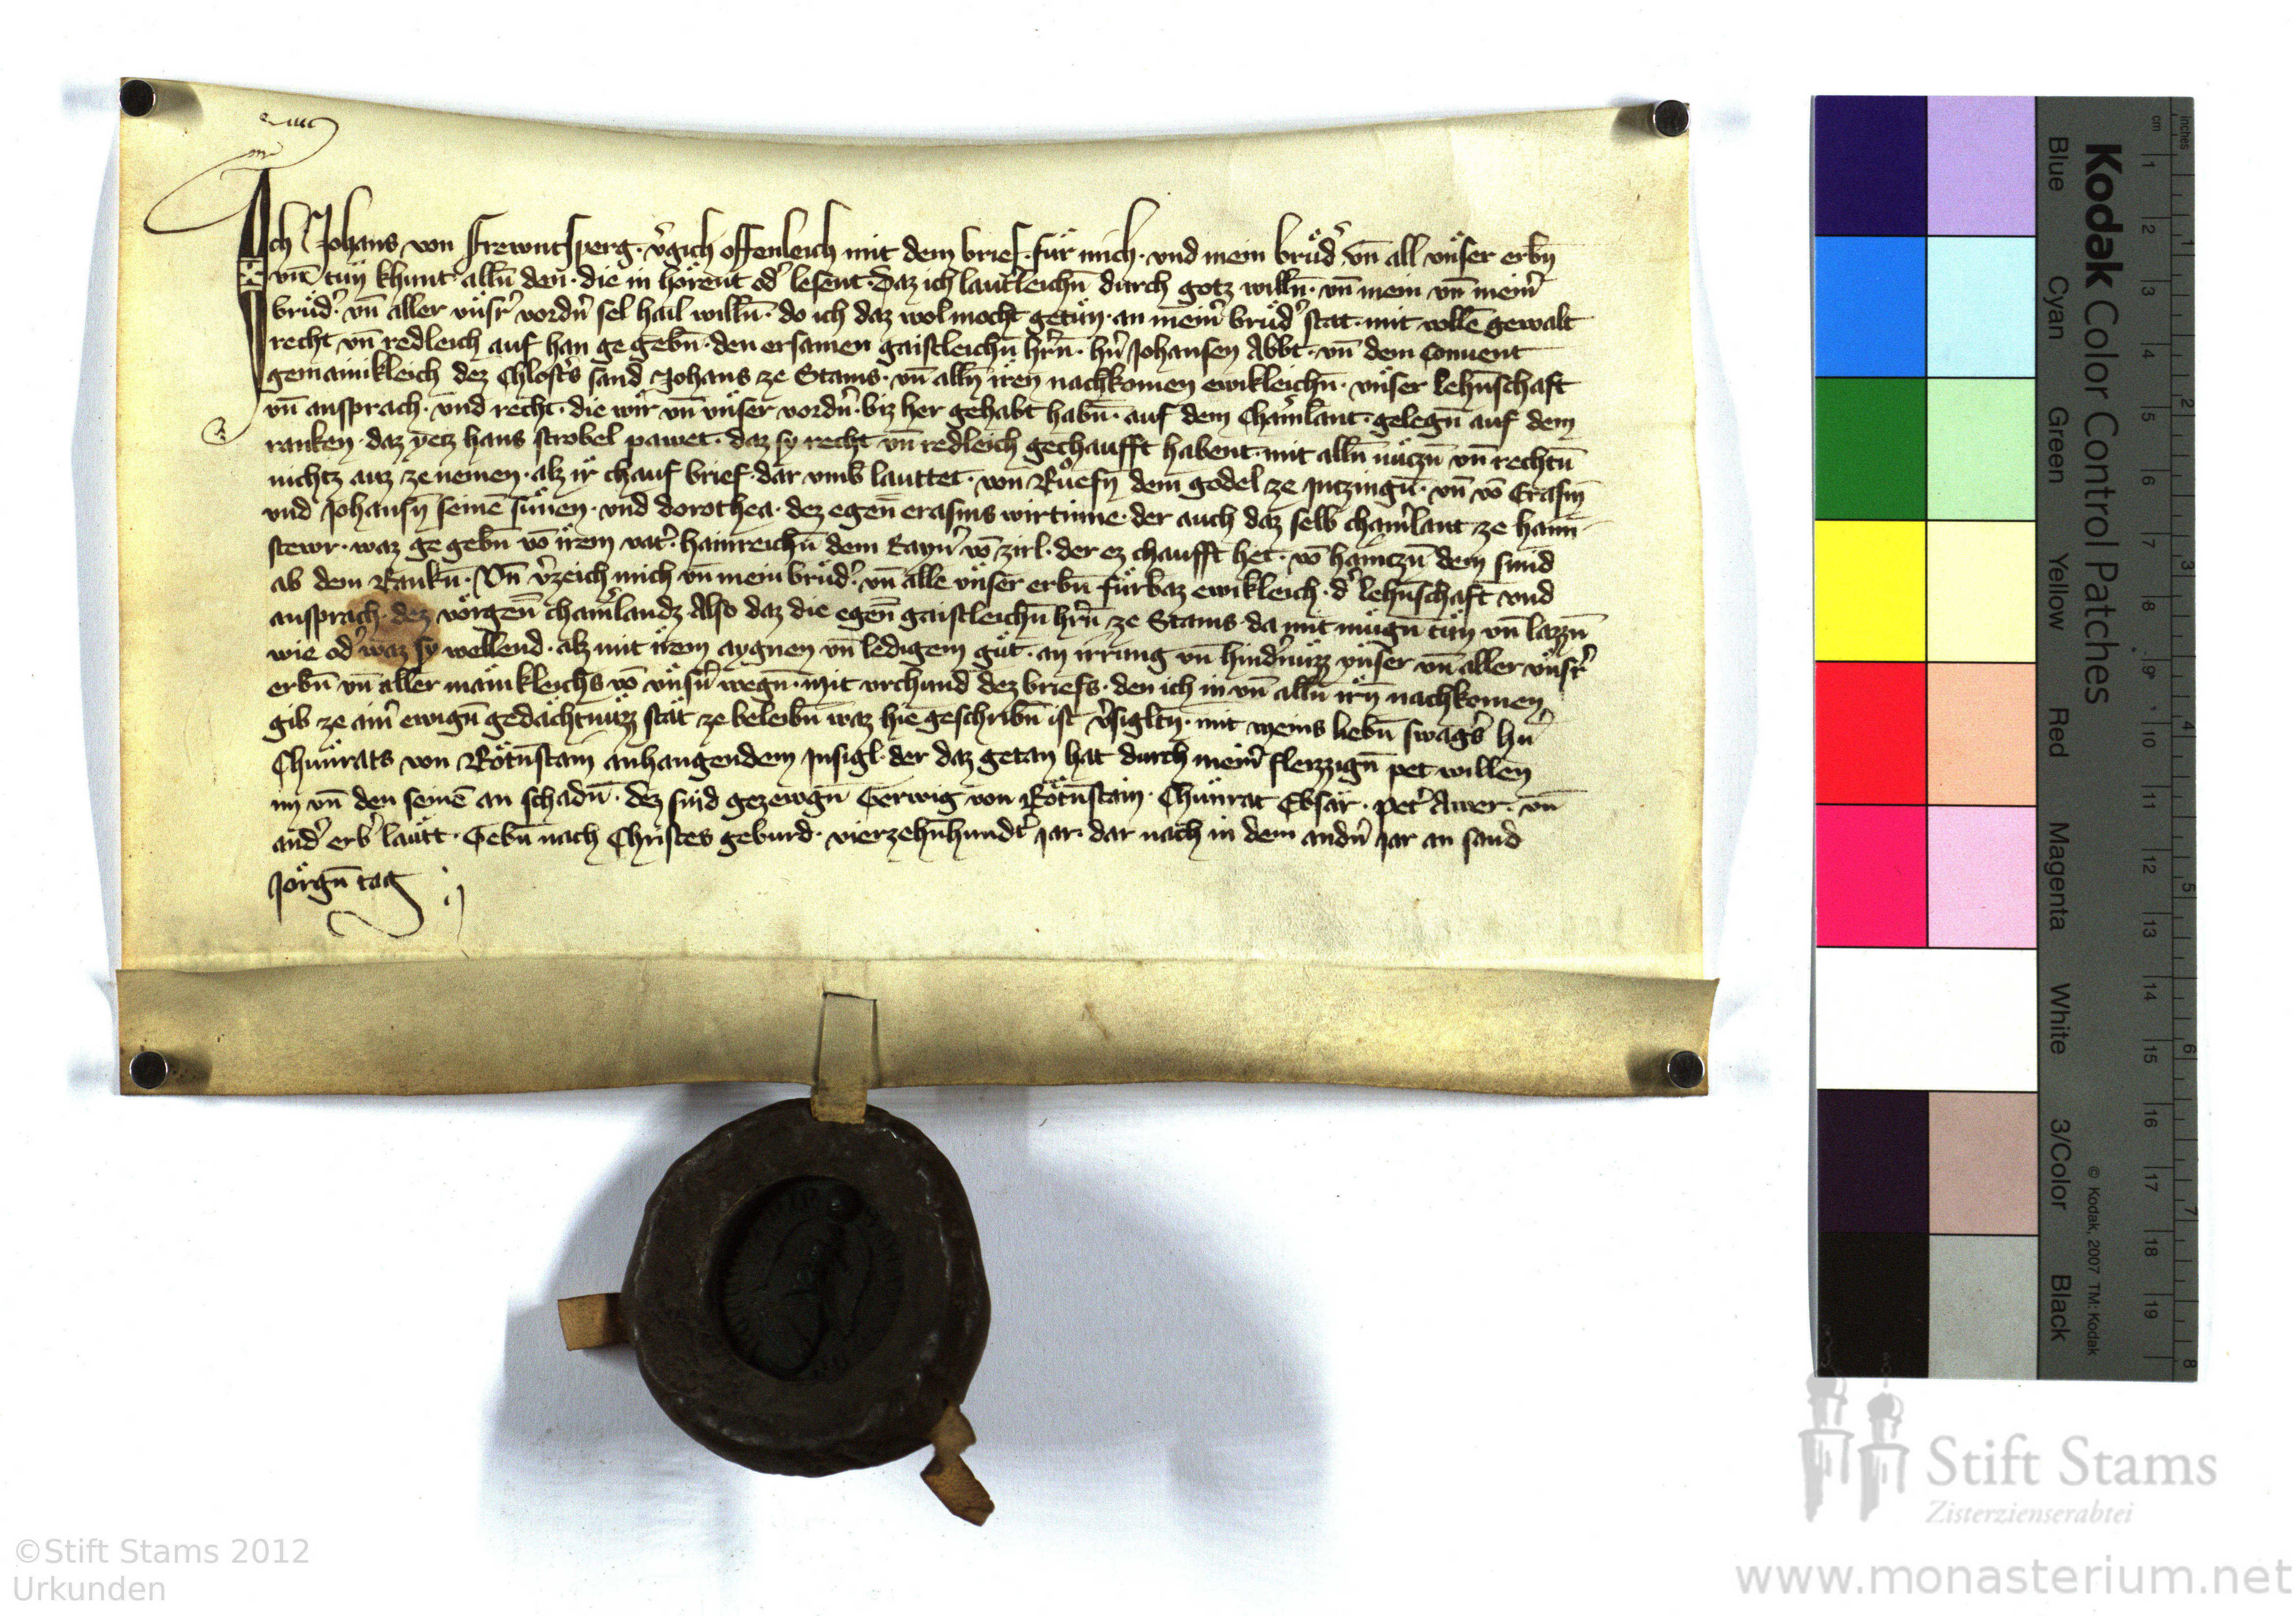 Ich Johans von Frewntsperg · v̉gich offenleich mit dem brief · fuͤr mich · vnd mein bruͤd̉ · vn̄ all vnͤser erbn̄
vn̄ tuͤn khunt alln̄ den · die in hoͤrent od̉ lesent · Daz ich lautt̉leichn̄ durch gotz willn̄ · vn̄ mein vn̄ mein̉
bruͤd̉ · vn̄ aller vnͤsr̉ vordn̉ sel hail willn̄ · do ich daz wol mocht getuͤn · an mein̉ bruͤd̉ stat · mit vollē gewalt
recht vn̄ redleich auf han ge gebn̄ · den ersamen gaistleichn̄ hrn̄ · hn̉ Johansen Abbt · vn̄ dem Conuent
gemainkleich dez Chlost̉s sand Johans ze Stams · vn̄ alln̄ iren nachkomen ewikleichn̄ · vnͤser lehn̄schaft
vn̄ ansprach · vnd recht · die wir vn̄ vnͤser vordn̉ · biz her gehabt habn̄ · auf dem Cham̉lant · gelegn̄ auf dem
ranken · daz yetz hans strobel pawet · daz sy recht vn̄ redleich gechaufft habent · mit alln̄ nuͤczn̄ vn̄ rechtn̄
nichtz auz ze nemen · alz ir chauf brief · dar vmb lauttet · von Ruͦefn̄ dem godel ze Intzingn̄ · vn̄ vō Erasm̄
vnd Johansn̄ seinē suͤnen · vnd dorothea · dez egen̄ erasms wirtinne · der auch daz selb cham̉lant ze haim
stewr · waz ge gebn̄ vō irem vat̉ · hainreichn̄ dem Rayn̉ vō zirl · der ez chaufft het · vō haintzn̄ dem smid
ab dem Rankn̄ · Vn̄ v̉zeich mich vn̄ mein bruͤd̉ · vn̄ alle vnͤser erbn̄ fuͤrbaz ewikleich · d̉ lehn̄schaft vnd
ansprach · dez voͤrgen̄ cham̉landz Also daz die egen̄ gaistleichn̄ hrn̄ ze Stams · da mit muͤgn̄ tuͤn vn̄ lazzn̄
wie od̉ waz sy wellend · alz mit irem aygnen vn̄ ledigem guͤt · an irrung vn̄ hind̉nuͤzz vnͤser vn̄ aller vnͤsr̉
erbn̄ vn̄ aller maͤinkleichs vō vnͤsn̉ wegn̄ · Mit vrchund dez briefs · den ich in vn̄ alln̄ irn̄ nachkomen
gib ze ain̉ ewign̄ gedaͤchtnuͤzz staͤt ze beleibn̄ waz hie geschribn̄ ist v̉sigltn̄ · mit meins liebn̄ swag̉s hn̉
Chunͤrats von Roͤtn̄stain anhangendem Insigl · der daz getan hat durch mein̉ fleizzign̄ pet willen
im vn̄ den seinē an schadn̄ · dez sind gezewgn̄ Gerwig von Roͤtn̄stain · Chunͤrat Ebsaͤr · Pet̉ Awer · vn̄
and̉ erb̉ laͤutt · Gebn̄ nach Christes geburd · vierzehn̄hundt̉ Jar · dar nach in dem andn̉ Jar an sand
Joͤrgn̄ tag
Kodak Color Control Patches
Blue Cyan Green Yellow Red Magenta White 3/Color Black
© Kodak, 2007 TM: Kodak
inches 1 2 3 4 5 6 7 8
cm 1 2 3 4 5 6 7 8 9 10 11 12 13 14 15 16 17 18 19
Stift Stams
Zisterzienserabtei
©Stift Stams 2012
Urkunden
www.monasterium.net